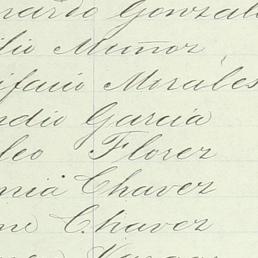 nardo Gonzal
ilio Muñoz
ifacio Morales
ndio Garcia
leo Florez
enia Chavez
me Chavez